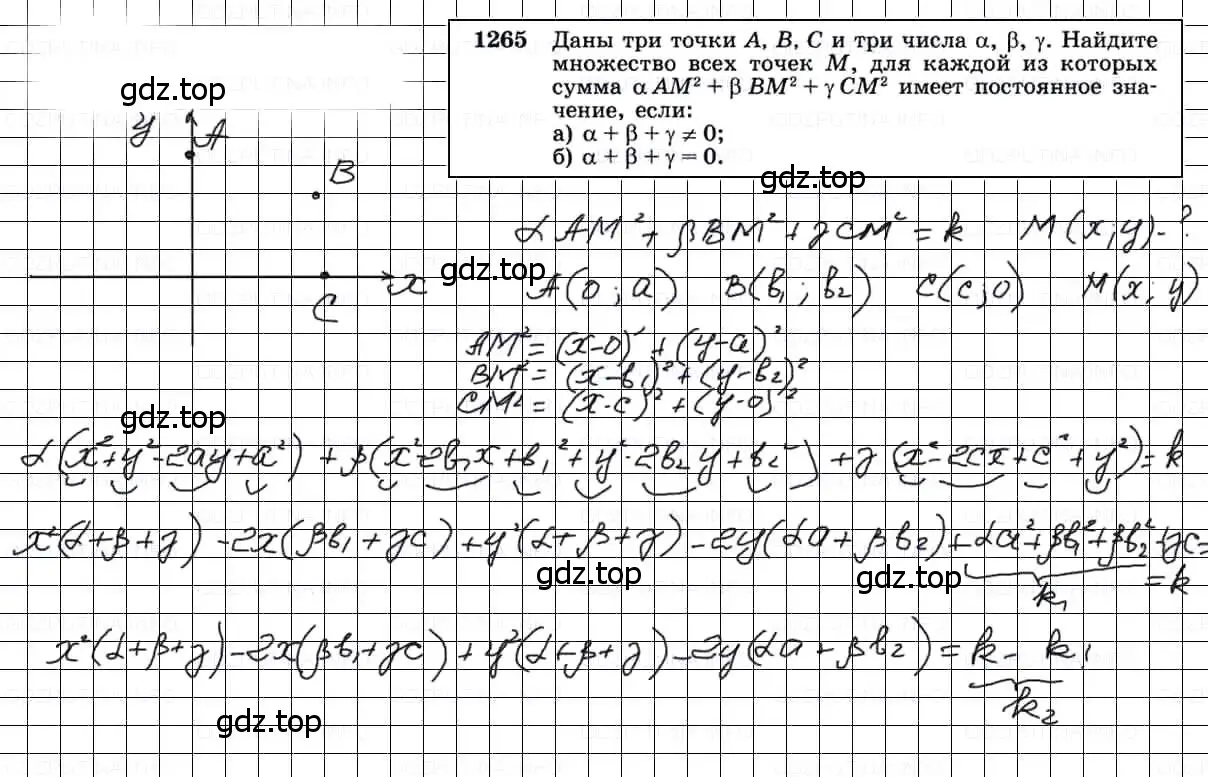 1265 Даны три точки A, B, C и три числа α, β, γ. Найдите
множество всех точек M, для каждой из которых
сумма α AM² + β BM² + γ CM² имеет постоянное зна-
чение, если:
а) α + β + γ ≠ 0;
б) α + β + γ = 0.
gdz.top
gdz.top
y A
B
x
C
αAM² + βBM² + γCM² = k M(x;y)-?
gdz.top
A(0;a) B(b₁;b₂) C(c;0) M(x;y)
AM² = (x-0)² + (y-a)²
BM² = (x-b₁)² + (y-b₂)²
CM² = (x-c)² + (y-0)²
gdz.top
α(x²+y²-2ay+a²) + β(x²-2b₁x+b₁²+y²-2b₂y+b₂²) + γ(x²-2cx+c²+y²) = k
x²(α+β+γ) -2x(βb₁+γc) + y²(α+β+γ) -2y(αa+βb₂) + αa²+βb₁²+βb₂²+γc=
= k
k₁
gdz.top
gdz.top
x²(α+β+γ) -2x(βb₁+γc) + y²(α+β+γ) -2y(αa+βb₂) = k - k₁
k₂
gdz.top